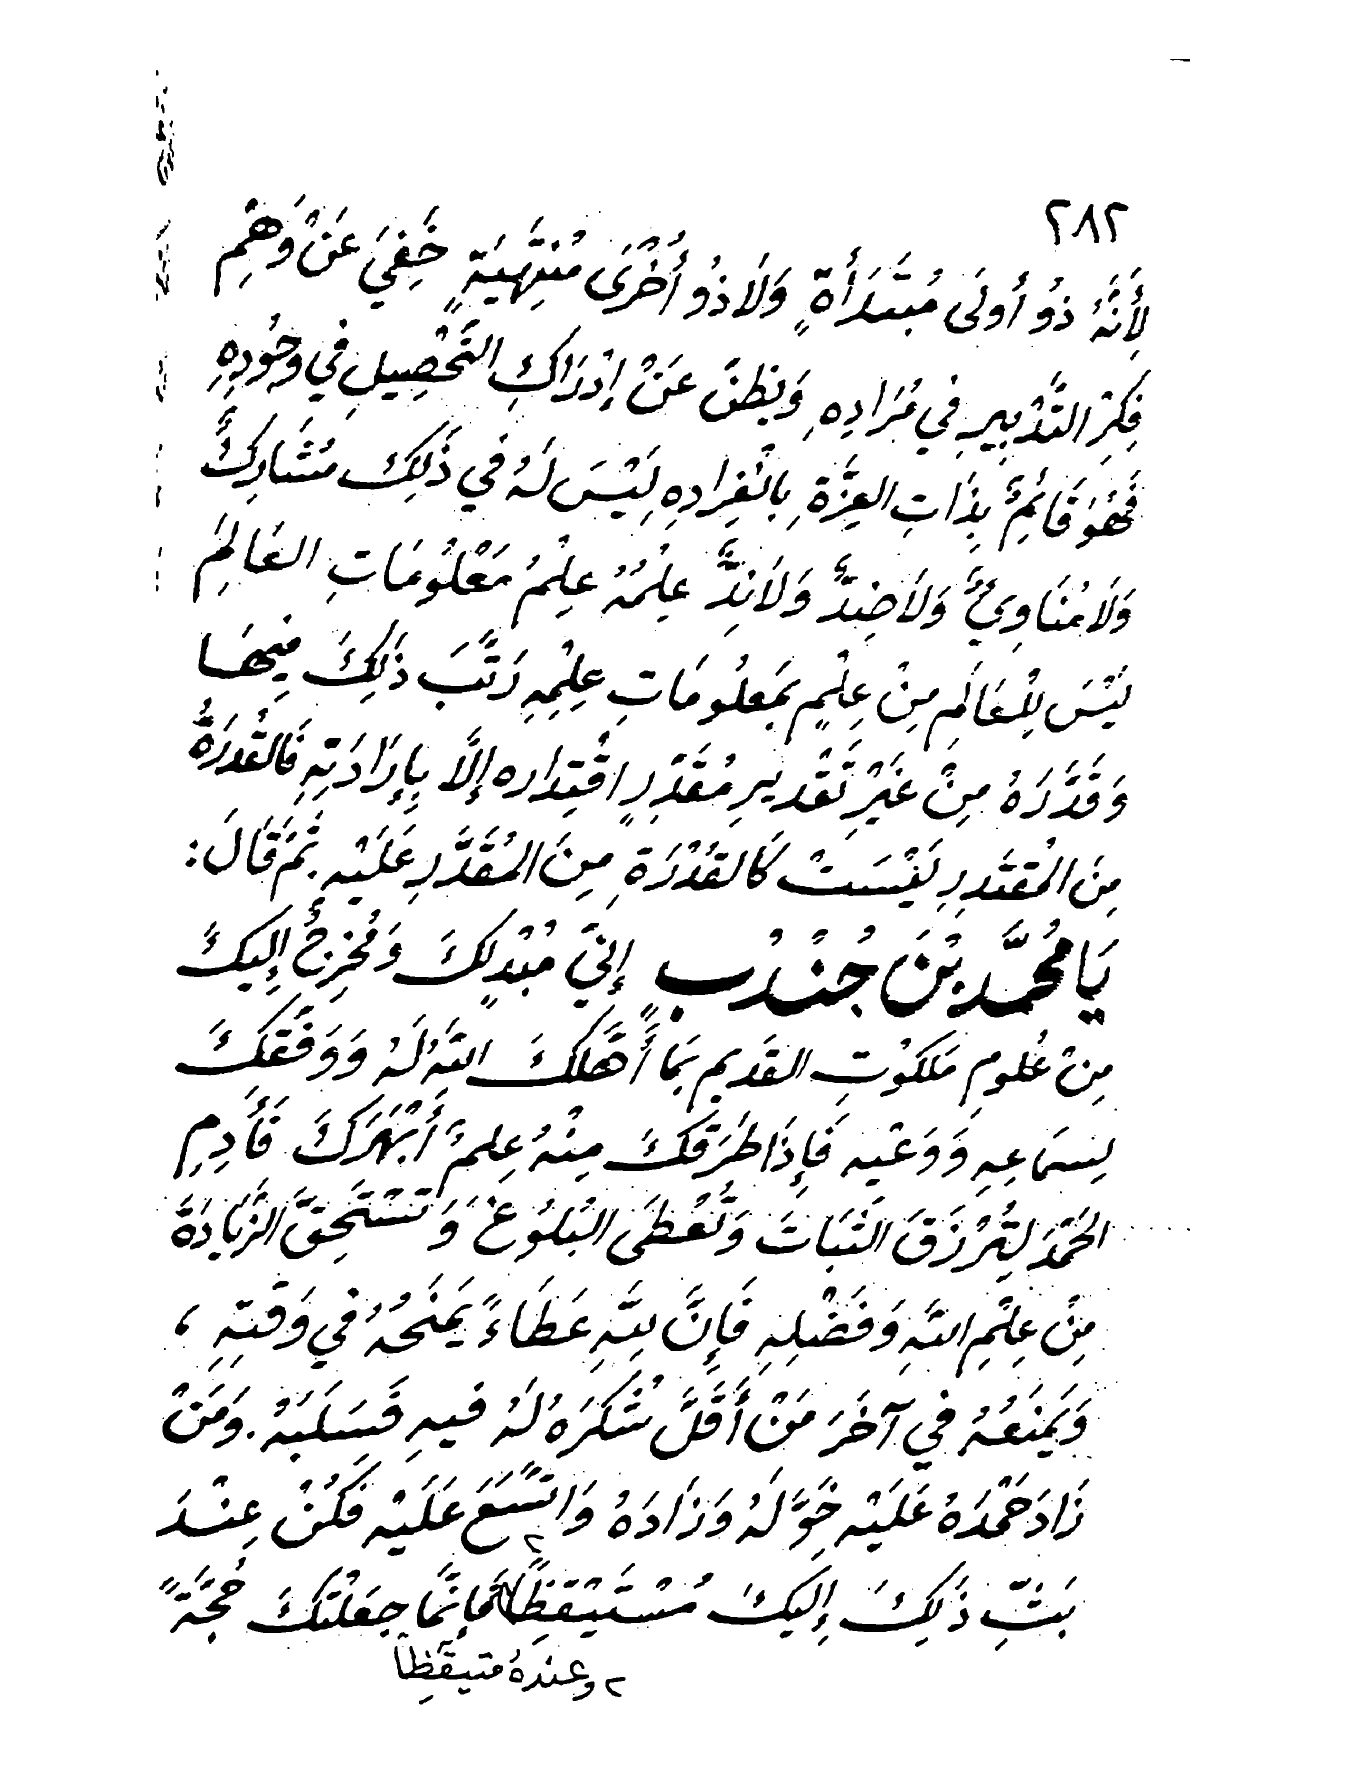 ٢٨٢
لِأَنَّهُ ذُو أُولَى مُبْتَدَأَةٍ وَلَا ذُو أُخْرَى مُنْتَهِيَةٍ خَفِيَ عَنْ وَهْمِ
فِكْرِ التَّدْبِيرِ فِي مُرَادِهِ وَبَطَنَ عَنْ إِدْرَاكِ التَّحْصِيلِ فِي وُجُودِهِ
فَهُوَ قَائِمٌ بِذَاتِ العِزَّةِ بِانْفِرَادِهِ لَيْسَ لَهُ فِي ذَلِكَ مُشَارِكٌ
وَلَا مُنَاوِيٌ وَلَا ضِدٌّ وَلَا نِدٌّ عِلْمُهُ عِلْمُ مَعْلُومَاتِ العَالَمِ
لَيْسَ لِلْعَالَمِ مِنْ عِلْمٍ بِمَعْلُومَاتِ عِلْمِهِ رَتَّبَ ذَلِكَ فِيهَا
وَقَدَّرَهُ مِنْ غَيْرِ تَقْدِيرِ مُقَدِّرٍ اقْتِدَاره إِلَّا بِإِرَادَتِهِ فَالقُدْرَةُ
مِنَ الْمُقْتَدِرِ لَيْسَتْ كَالقُدْرَةِ مِنَ المُقَدَّرِ عَلَيْهِ. ثُمَّ قَالَ:
يَا مُحَمَّد بْنَ جُنْدُبٍ إِنِّي مُبْدٍ لَكَ وَمُخْرِجٌ إِلَيكَ
مِنْ عُلُومِ مَلَكُوتِ القَدِيمِ بِمَا أَهَّلَكَ اللَّهُ لَهُ وَوَفَّقَكَ
لِسَمَاعِهِ وَوَعْيِهِ فَإِذَا طَرَقَكَ مِنْهُ عِلمٌ أَبْهَرَكَ فَأَدِمِ
الحَمْدَ لِتُرْزَقَ الثَّبَاتَ وَتُعْطَى البُلُوغَ وَتَسْتَحِقَّ الزِّيَادَةَ
مِنْ عِلْمِ اللَّهِ وَفَضْلِهِ فَإِنَّ لِلَّهِ عَطَاءً يَمْنَحُهُ فِي وَقْتِهِ ،
وَيَمْنَعُهُ فِي آخَرَ مَنْ أَقَلَّ شُكْرَهُ لَهُ فِيهِ فَسَلَبَهُ. وَمَنْ
زَادَ حَمْدَهُ عَلَيْهِ خَوَّلَهُ وَزَادَهُ وَاتَّسَعَ عَلَيْهِ فَكُنْ عِنْدَ
بَثِّ ذَلِكَ إِلَيكَ مُسْتَيْقِظًا٢ فَإِنَّمَا جَعَلْتُكَ حُجَّةً
٢ وعندهُ متيقّظاً